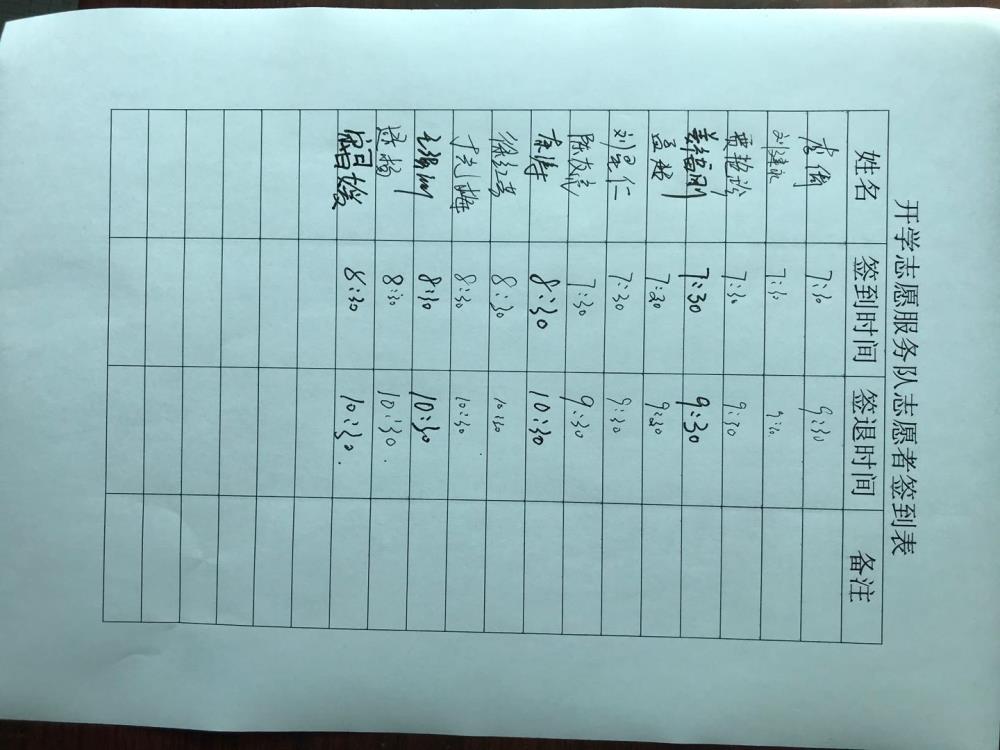 开学志愿服务队志愿者签到表
姓名 签到时间 签退时间 备注
李倩 7:30 9:30
刘建 7:30
贾艳玲 7:30 9:30
姜绪刚 7:30 9:30
孟杨 7:30 9:30
刘昆仁 7:30 9:30
陈友武 7:30 9:30
8:30 10:30
徐红芳 8:30 10:30
于光梅 8:30 10:30
王强 8:30 10:30
杨 8:30 10:30.
媛 8:30 10:30.